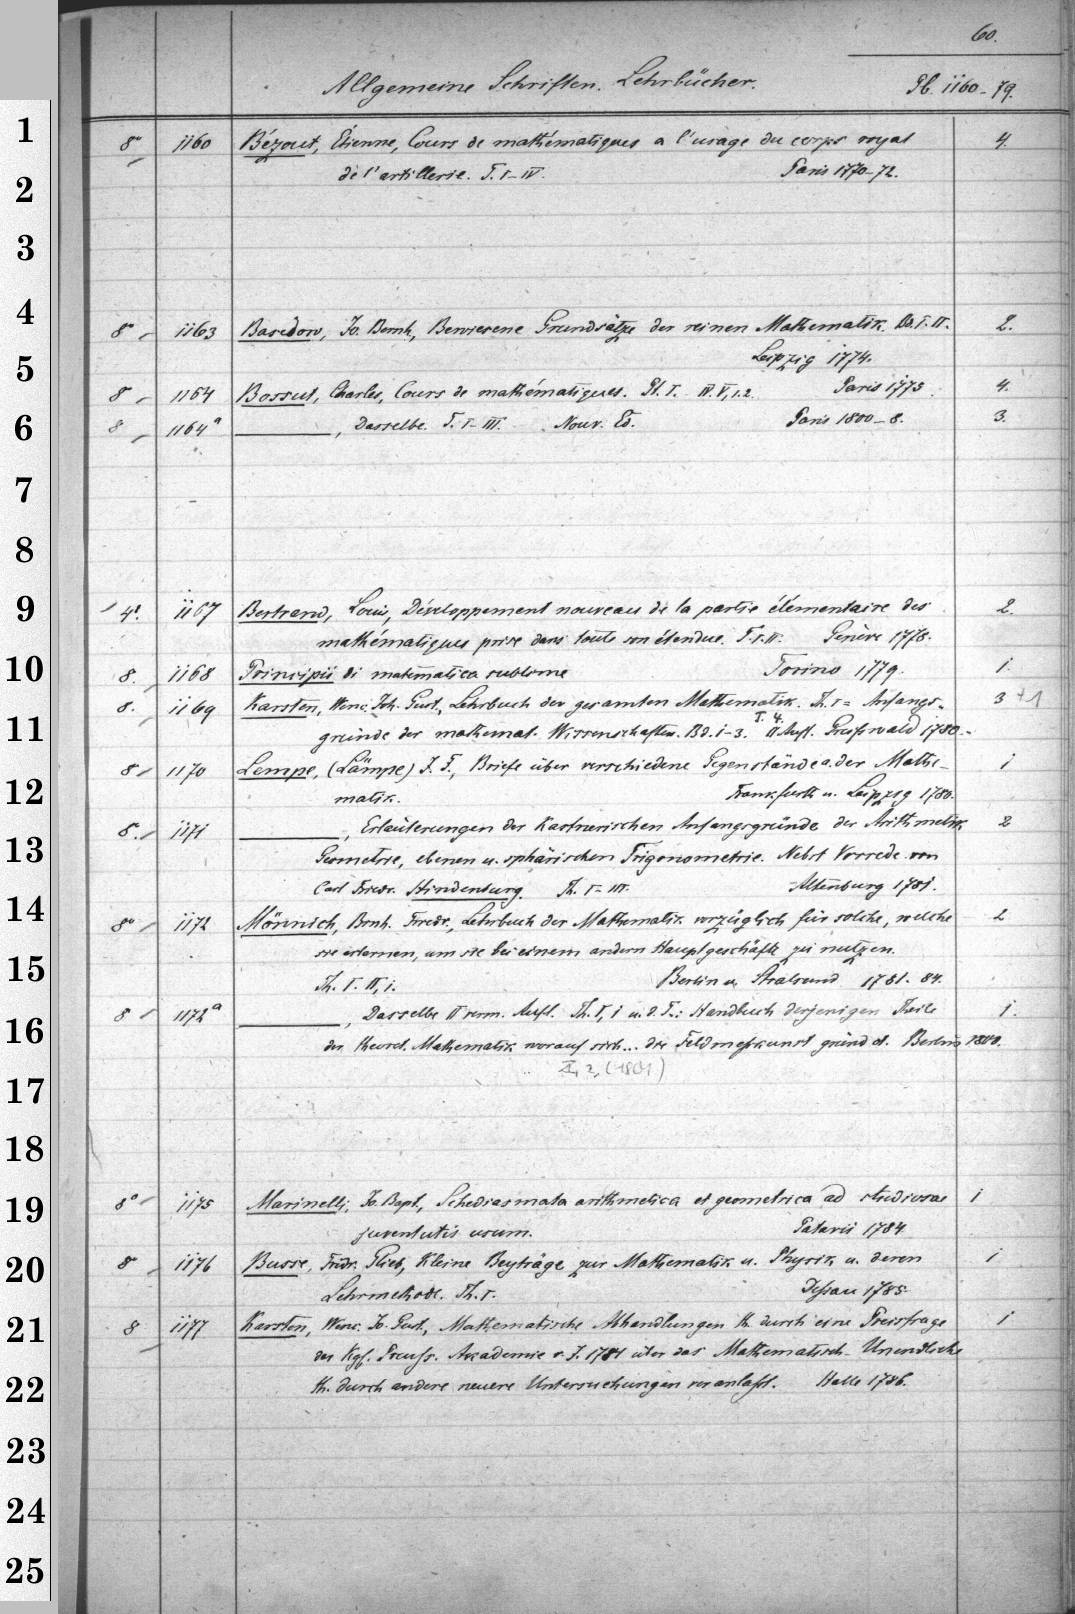 60.
Allgemeine Schriften. Lehrbücher. Pb. 1160-79.
1
8° 1160 Bézout, Étienne, Cours de mathématiques a l'usage du corps royal 4.
de l'artillerie. T. I-IV. Paris 1770-72.
2
3
4
8° 1163 Basedow, Jo. Bernh., Bewiesene Grundsätze der reinen Mathematik. Bd. I. II. 2.
Leipzig 1774.
5
8 1164 Bossut, Charles, Cours de mathématiques. Pt. I. III. V, 1.2. Paris 1775. 4.
6
8 1164a ———, Dasselbe. T. I-III. Nouv. Ed. Paris 1800-8. 3.
7
8
9
4°. 1167 Bertrand, Louis, Développement nouveau de la partie élémentaire des 2.
mathématiques prise dans toute son étendue. T. I. II. Genève 1778.
10
8. 1168 Principii di matematica sublime Torino 1779. 1.
8. 1169 Karsten, Wenc. Joh. Gust., Lehrbuch der gesamten Mathematik. Th. I = Anfangs- 3 +1
11
gründe der mathemat. Wissenschaften. Bd. 1-3. T. 4. II Aufl. Greifswald 1780.-
8 1170 Lempe, (Lämpe) J. F., Briefe über verschiedene Gegenstände a. der Mathe- 1
12
matik. Frankfurth u. Leipzig 1780.
8. 1171 ———, Erläuterungen der Kästnerischen Anfangsgründe der Arithmetik 2
13
Geometrie, ebenen u. sphärischen Trigonometrie. Nebst Vorrede von
Carl Friedr. Hindenburg. Th. I-III. Altenburg 1781.
14
8° 1172 Mönnich, Brnh. Friedr., Lehrbuch der Mathematik vorzüglich für solche, welche 2
sie erlernen, um sie bei einem andern Hauptgeschäfte zu nutzen.
15
Th. I. II, 1. Berlin u. Stralsund 1781-84.
8 1172a ———, Dasselbe II verm. Aufl. Th. I, 1 u. d. T.: Handbuch derjenigen Theile 1.
16
der theoret. Mathematik worauf sich... die Feldmeßkunst gründet. Berlin 1800.
II, 2, (1801)
17
18
19
8° 1175 Marinelli, Jo. Bapt., Schediasmata arithmetica et geometrica ad studiosae 1
juventutis usum. Patavii 1784.
20
8 1176 Busse, Fridr. Glieb, Kleine Beyträge zur Mathematik u. Physik u. deren 1
Lehrmethode. Th. I. Dessau 1785.
21
8 1177 Karsten, Wenc. Jo. Gust., Mathematische Abhandlungen th. durch eine Preisfrage 1
der Kgl. Preuss. Academie v. J. 1784 über das Mathematisch-Unendliche
22
th. durch andere neuere Untersuchungen veranlaßt. Halle 1786.
23
24
25